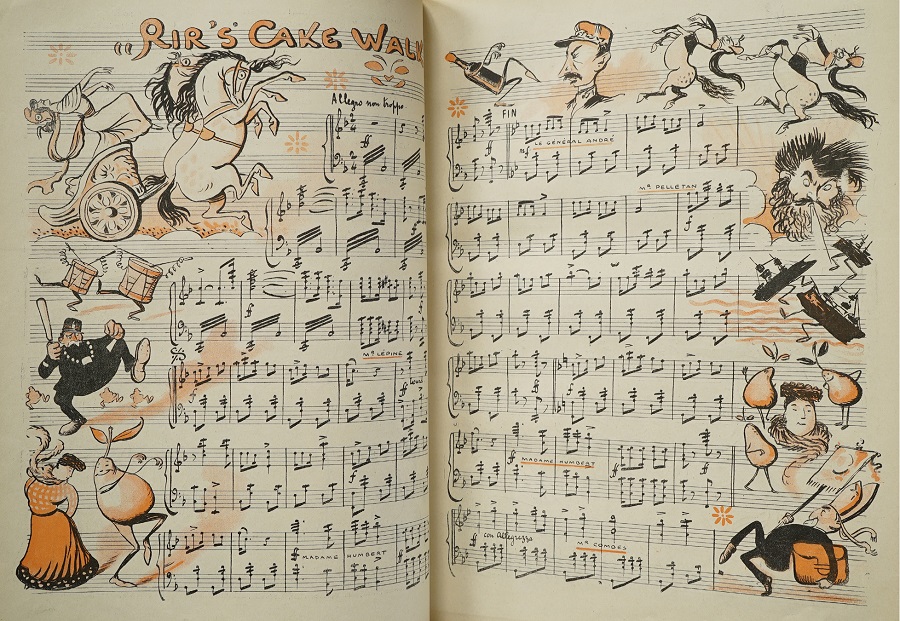 "RIR'S CAKE WALK
Allegro non troppo
ff
ff
ff
Mr LÉPINE
ff
MADAME HUMBERT
FIN
ff
mf
LE GÉNÉRAL ANDRÉ
Mr PELLETAN
f
ff
f
ff
MADAME HUMBERT
ff
ff
con allegrezza
Mr COMBES